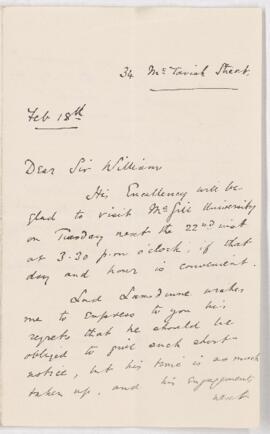 34 McTavish Street.
Feb 18th
Dear Sir William
His Excellency will be
glad to visit McGill University
on Tuesday next the 22nd inst
at 3-30 p.m o'clock if that
day and hour is convenient.
Lord Lansdowne wishes
me to express to you his
regrets that he should be
obliged to give such short
notice, but his time is so much
taken up, and his engagements
next